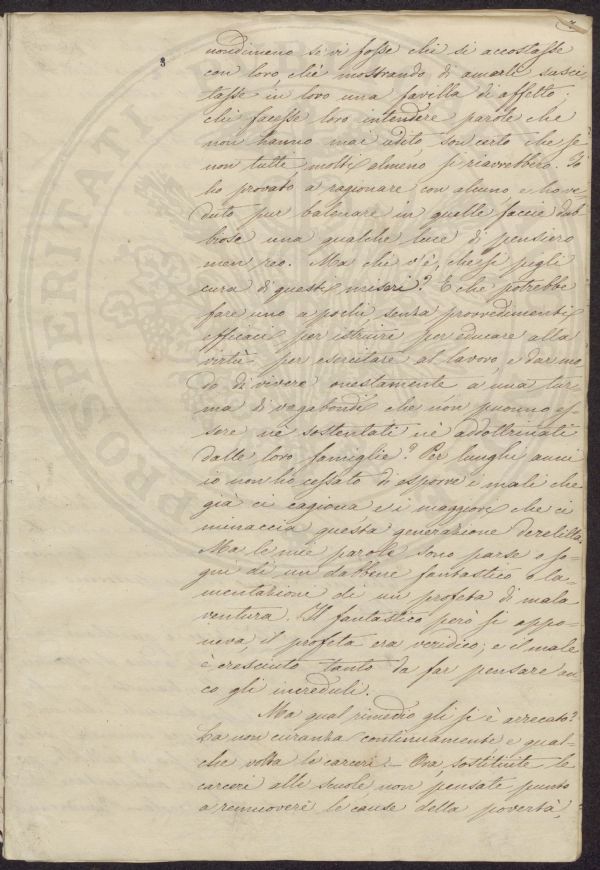 7
3
nondimeno se vi fosse chi si accostasse
con loro, chè mostrando di amarli susci
tasse in loro una favilla di affetto;
chi facesse loro intendere parole che
non hanno mai udito, son certo che se
non tutti, molti almeno si riavrebbero. Io
ho provato a ragionare con alcuno e ho ve
duto pur balenare in quelle faccie dub
biose una qualche luce di pensiero
men reo. Ma chi v'è, che si pigli
cura di questi miseri? E che potrebbe
fare uno o pochi senza provvedimenti
efficaci per istruire per educare alla
virtù per esercitare al lavoro, e dar mo
do di vivere onestamente a una tur
ma di vagabondi che non puonno es
sere nè sostentati nè addottrinati
dalle loro famiglie? Per lunghi anni
io non ho cessato di esporre i mali che
già ci cagiona e i maggiori che ci
minaccia questa generazione derelitta.
Ma le mie parole sono parse o so
gni di un dabbene fantastico o la
mentazione di un profeta di mala
ventura. Il fantastico però si appo
neva, il profeta era veridico; e il male
è cresciuto tanto da far pensare an
co gli increduli.
Ma qual rimedio gli si è arrecato?
La non curanza continuamente e qual-
che volta le carceri. — Ora, sostituite le
carceri alle scuole, non pensate punto
a remuovere le cause della povertà,
PROSPERITATI PUBL